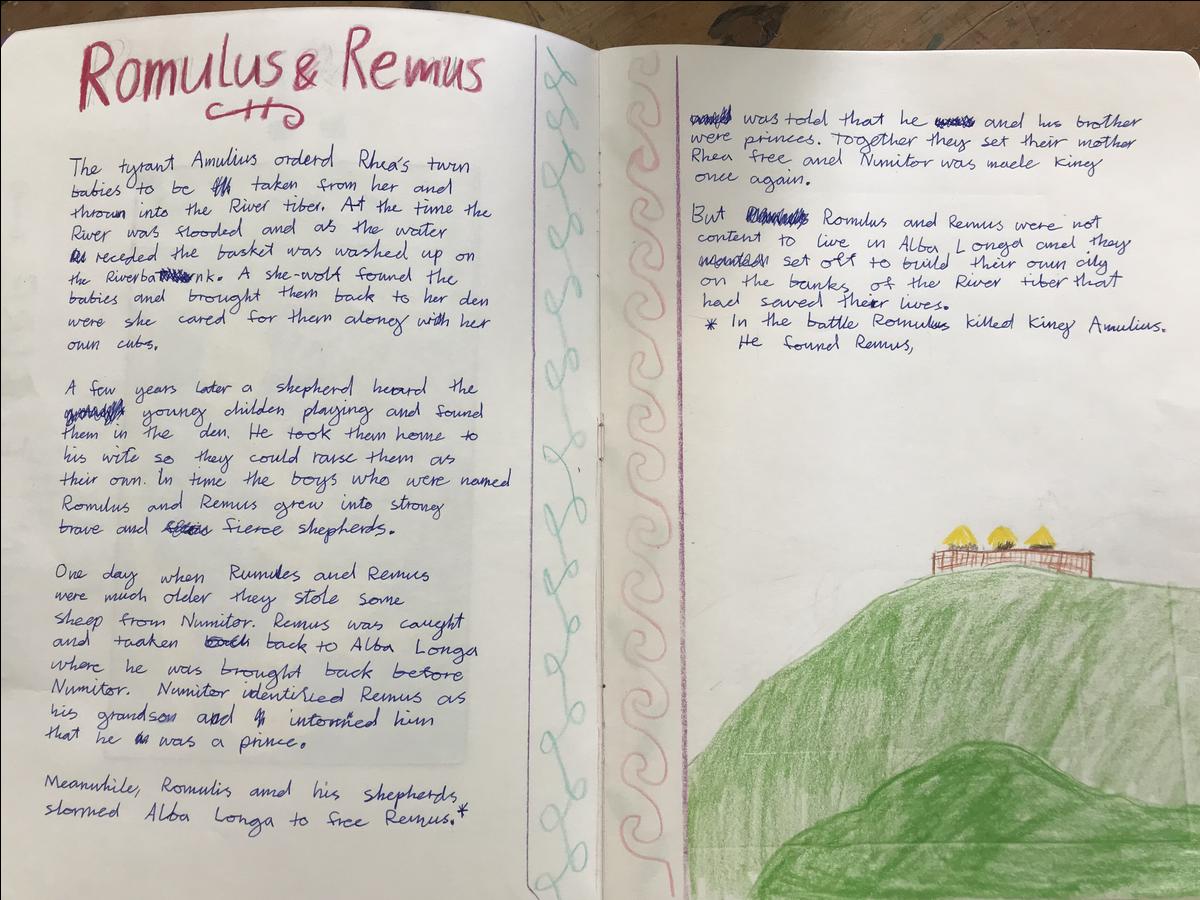 Romulus & Remus
The tyrant Amulius orderd Rhea's twin
babies to be taken from her and
thrown into the River tiber. At the time the
River was flooded and as the water
receded the basket was washed up on
the Riverbank. A she-wolf found the
babies and brought them back to her den
were she cared for them along with her
own cubs.
A few years later a shepherd heard the
young childen playing and found
them in the den. He took them home to
his wife so they could raise them as
their own. In time the boys who were named
Romulus and Remus grew into strong
brave and fierce shepherds.
One day when Rumules and Remus
were much older they stole some
sheep from Numitor. Remus was caught
and taaken back to Alba Longa
where he was brought back before
Numitor. Numitor identified Remus as
his grandson and informed him
that he was a prince.
Meanwhile, Romulis and his shepherds
stormed Alba Longa to free Remus.*
was told that he and his brother
were princes. Together they set their mother
Rhea free and Numitor was made King
once again.
But Romulus and Remus were not
content to live in Alba Longa and they
set off to build their own city
on the banks of the River tiber that
had saved their lives.
* In the battle Romulus killed King Amulius.
He found Remus,